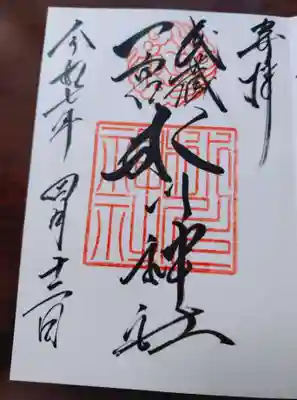 奉拝
武蔵
一宮
氷川神社
令和七年 四月
氷川
神社